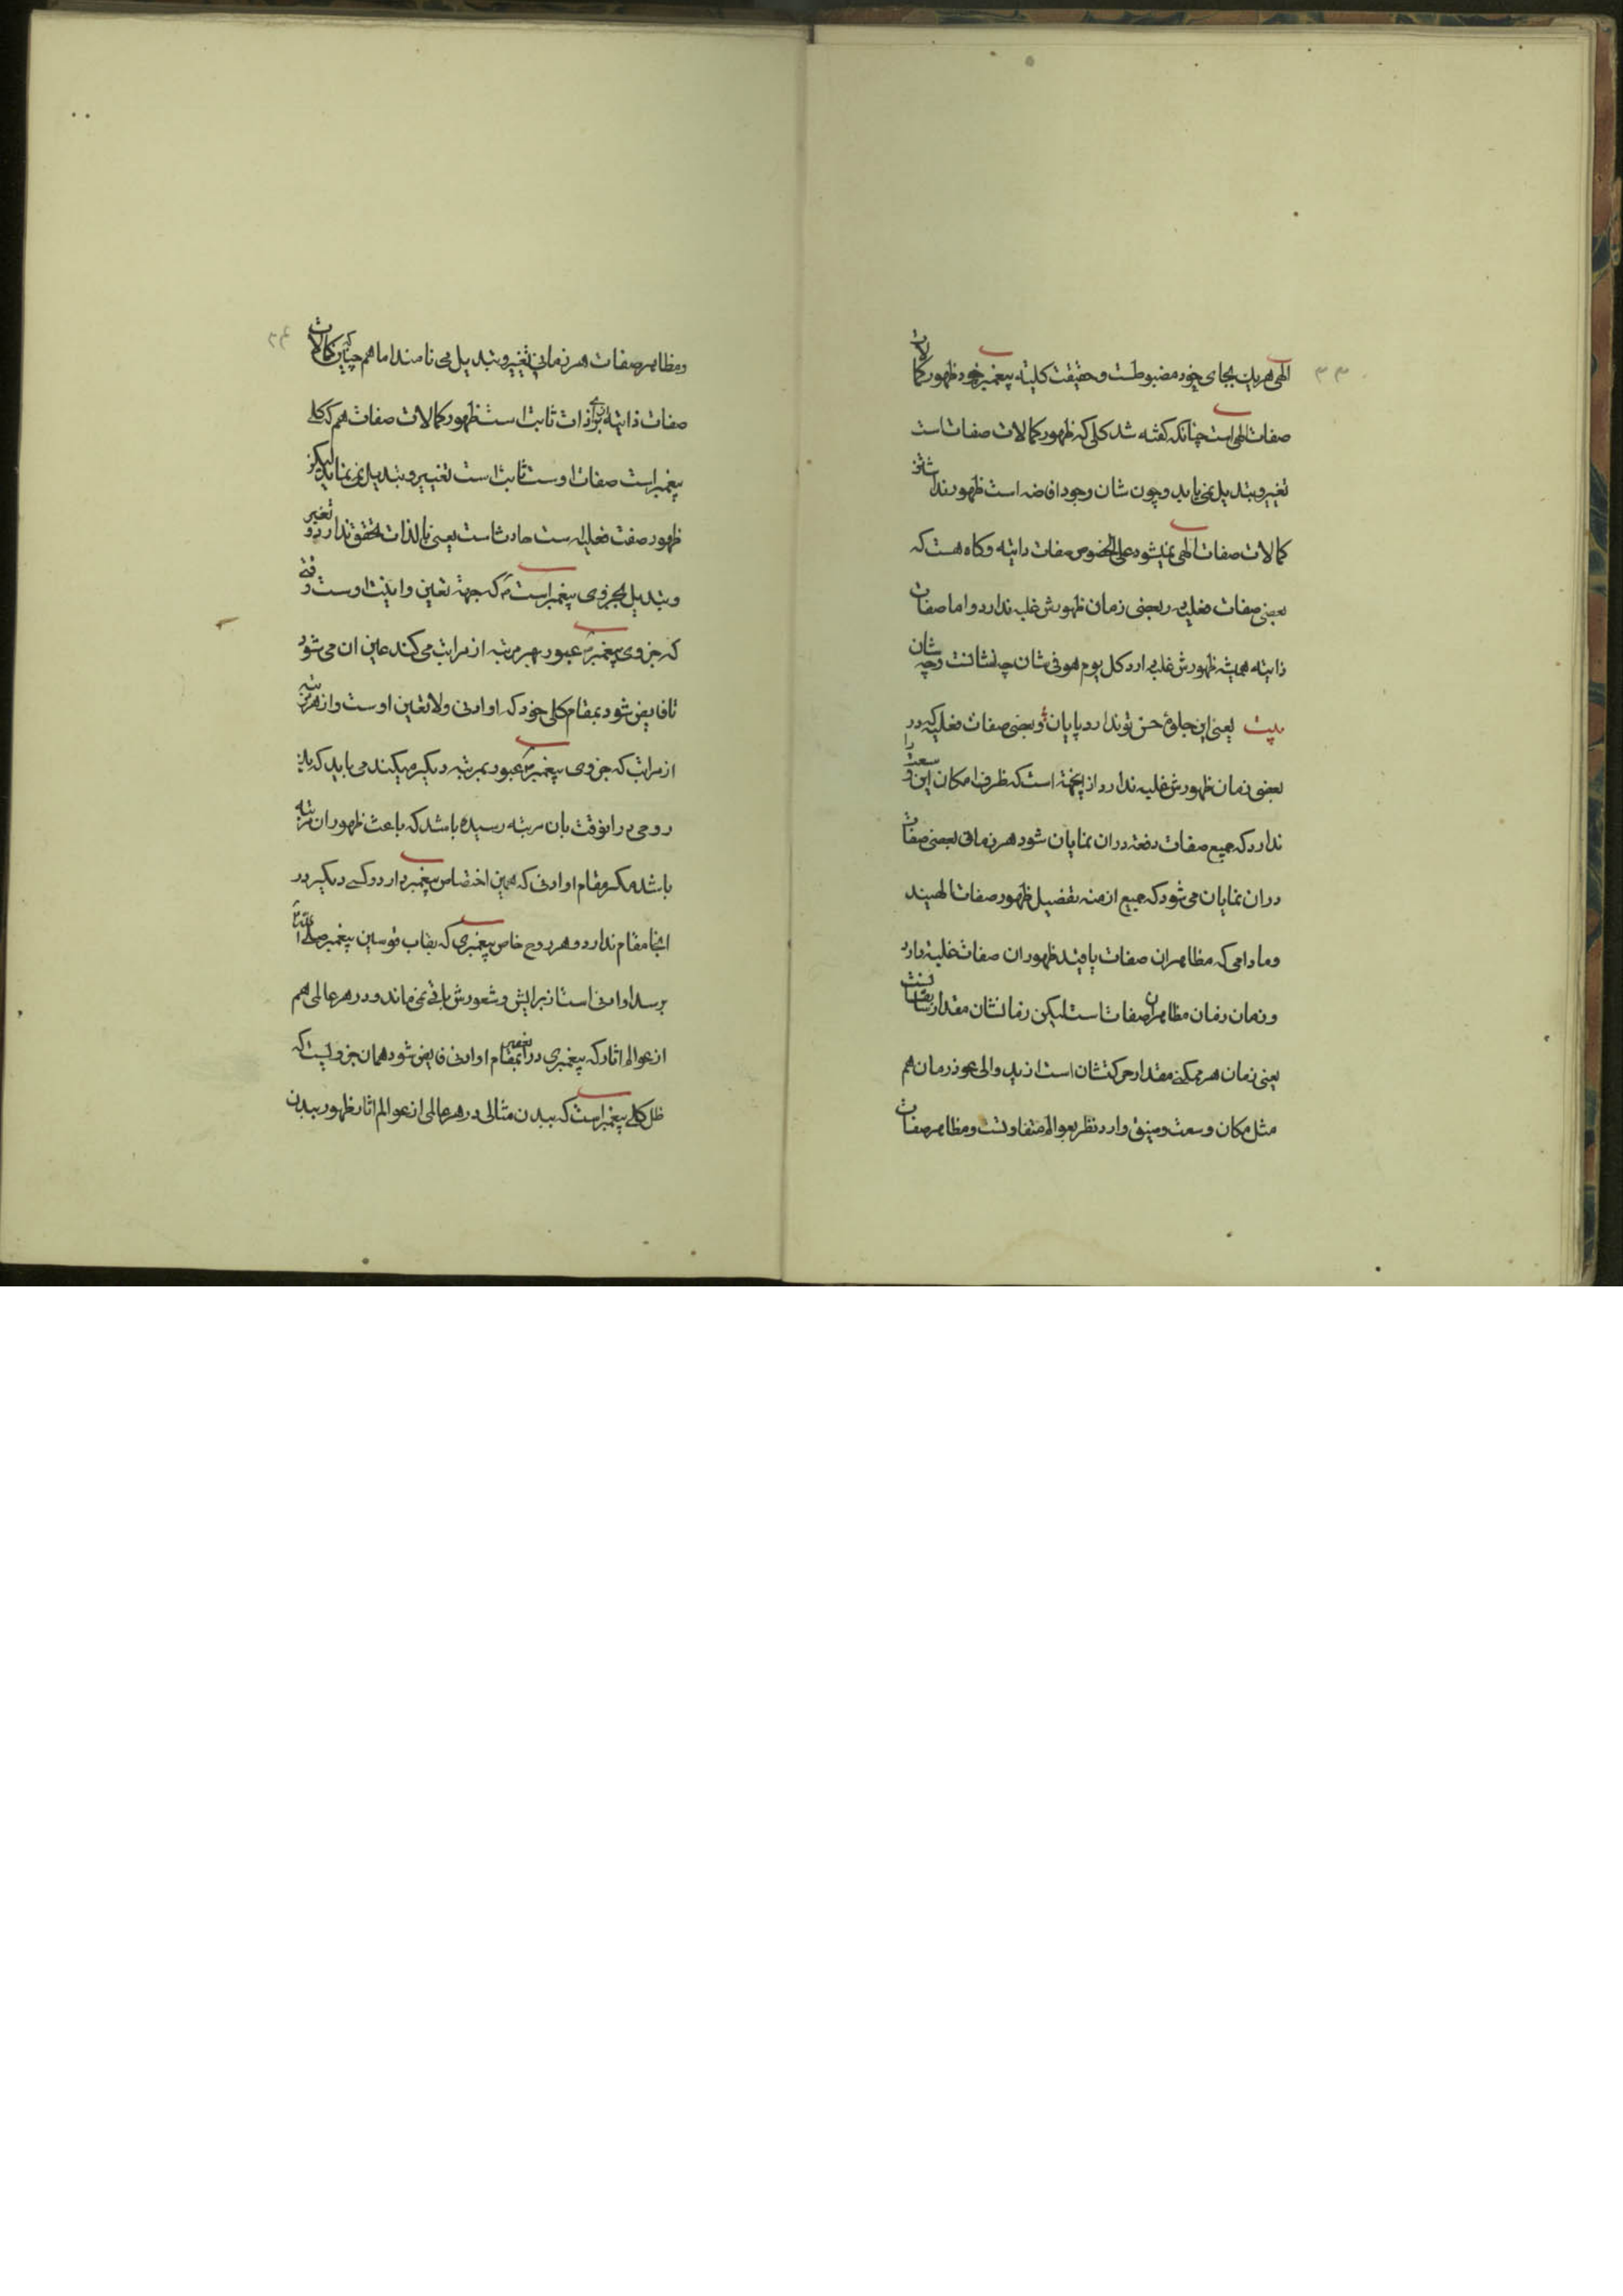 ۳۳
الهی هریک بجای خود مضبوطست و حقیقت کلیته پیغمبر خود ظهور کمالات
صفات الهی است چنانکه گفته شد کلی که ظهور کمالات صفات است
تغییر و تبدیل نمی یابد و چون شان وجود افاضه است ظهور ندا شتن
کمالات صفات الهی نمیشود علی الخصوص صفات ذاتیه و کاه هست که
بعضی صفات فعلیه در بعضی زمان ظهورش غلبه ندارد و اما صفات
ذاتیه همیشه ظهورش غلبه دارد کل یوم هو فی شان چه نشانست و چه شان
بیت یعنی این جلوهٔ حسن تو ندارد پایان و بعضی صفات فعلیه که در
بعضی زمان ظهورش غلبه ندارد از اینجهة است که ظرف امکان این وسعت را
ندارد که جمیع صفات دفعة در ان نمایان شود هر زمانی بعضی صفات
در ان نمایان می شود که جمیع ازمنه بتفصیل ظهور صفات الهیند
و مادامی که مظاهر ان صفات باقیند ظهور ان صفات غلبه دارد
و زمان زمان مظاهر ان صفات است لیکن زمانشان مقدار نشأتشانست
یعنی زمان هر ممکنی مقدار حرکتشان است از ید والی عود زمان هم
مثل مکان وسعت و ضیق دارد نظر بعوالم متفاوتست و مظاهر صفات
۳۴
و مظاهر صفات هر زمانی تغییر و تبدیل می نامند اما همچنانکه کمالات
صفات ذاتیه برای ذات ثابت است ظهور کمالات صفات هم که کلی
پیغمبر است صفات اوست ثابت است تغییر و تبدیل نمی نماید لیکن
ظهور صفت فعلیه است حادث است یعنی بالذات تحقق ندارد و تغییر
و تبدیل بجزوی پیغمبر است که جهة تعین و انیت اوست وقتی
که جزوی پیغمبر عبور بهر مرتبه از مراتب می کند عین ان می شود
تا فایض شود بمقام کلی خود که او ادنی و لا تعین اوست و از هر مرتبه
از مراتب که جزوی پیغمبر عبور بمرتبه دیگر میکند می باید که
روحی در انوقت بان مرتبه رسیده باشد که باعث ظهور ان مرتبه
باشد مگر مقام او ادنی که همین اختصاص پیغمبر دارد و کسی دیگر در
انجا مقام ندارد و هر روح خاص پیغمبری که بقاب قوسین پیغمبر صلی الله علیه
برسد او ادنی است از برایش و شعورش باقی نمی ماند و در هر عالمی هم
از عوالم اثار که پیغمبری در انجا بمقام او ادنی فایض شود همان جزویست که
ظل کلی پیغمبر است که ببدن مثالی در هر عالمی از عوالم اثار ظهور ببدن